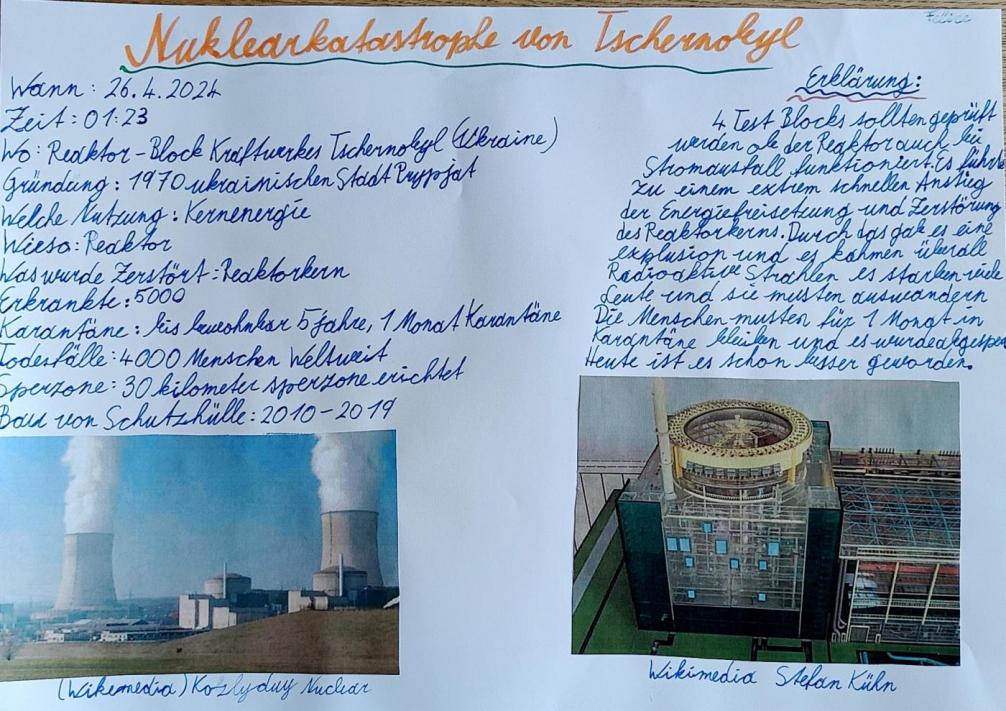 Felice
Nuklearkatastrophe von Tschernobyl
Wann: 26.4.2024
Zeit: 01:23
Wo: Reaktor-Block Kraftwerkes Tschernobyl (Ukraine)
Gründung: 1970 ukrainischen Stadt Prypjat
Welche Nutzung: Kernenergie
Wieso: Reaktor
Was wurde Zerstört: Reaktorkern
Erkrankte: 5000
Karantäne: bis bewohnbar 5 jahre, 1 Monat Karantäne
Todesfälle: 4000 Menschen Weltweit
Sperzone: 30 kilometer sperzone erichtet
Bau von Schutzhülle: 2010-2019
(Wikemedia) Kozlyduy Nuclear
Erklärung:
4 Test Blocks sollten geprüft
werden ob der Reaktor auch bei
Stromausfall funktioniert. Es führte
zu einem extrem schnellen Anstieg
der Energiefreisetzung und Zerstörung
des Reaktorkerns. Durch das gab es eine
explosion und es kahmen überall
Radioaktive Strahlen es starben viele
Leute und sie musten auswandern
Die Menschen musten für 1 Monat in
Karantäne bleiben und es wurde abgesper
Heute ist es schon besser geworden.
Wikimedia Stefan Kühn